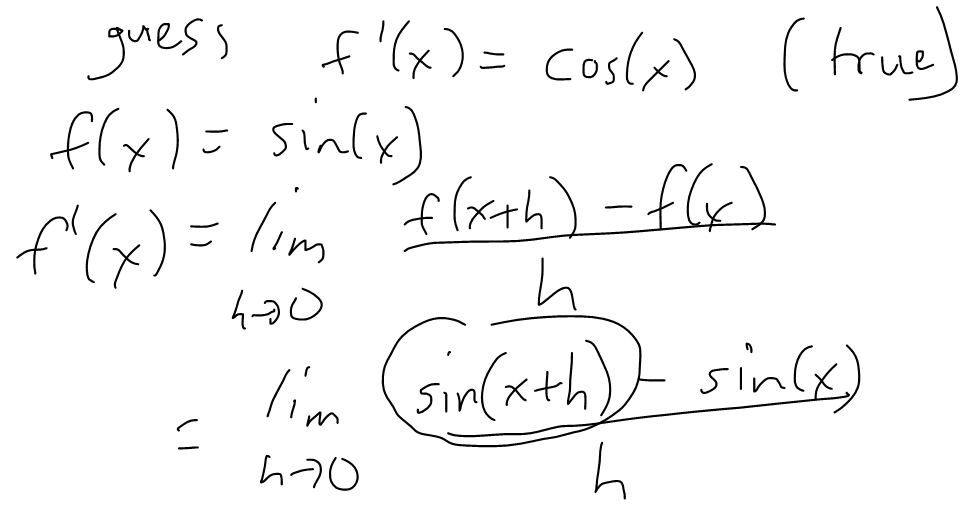 guess f'(x) = cos(x) (true)
f(x) = sin(x)
f'(x) = lim h→0 f(x+h) - f(x) / h
= lim h→0 sin(x+h) - sin(x) / h